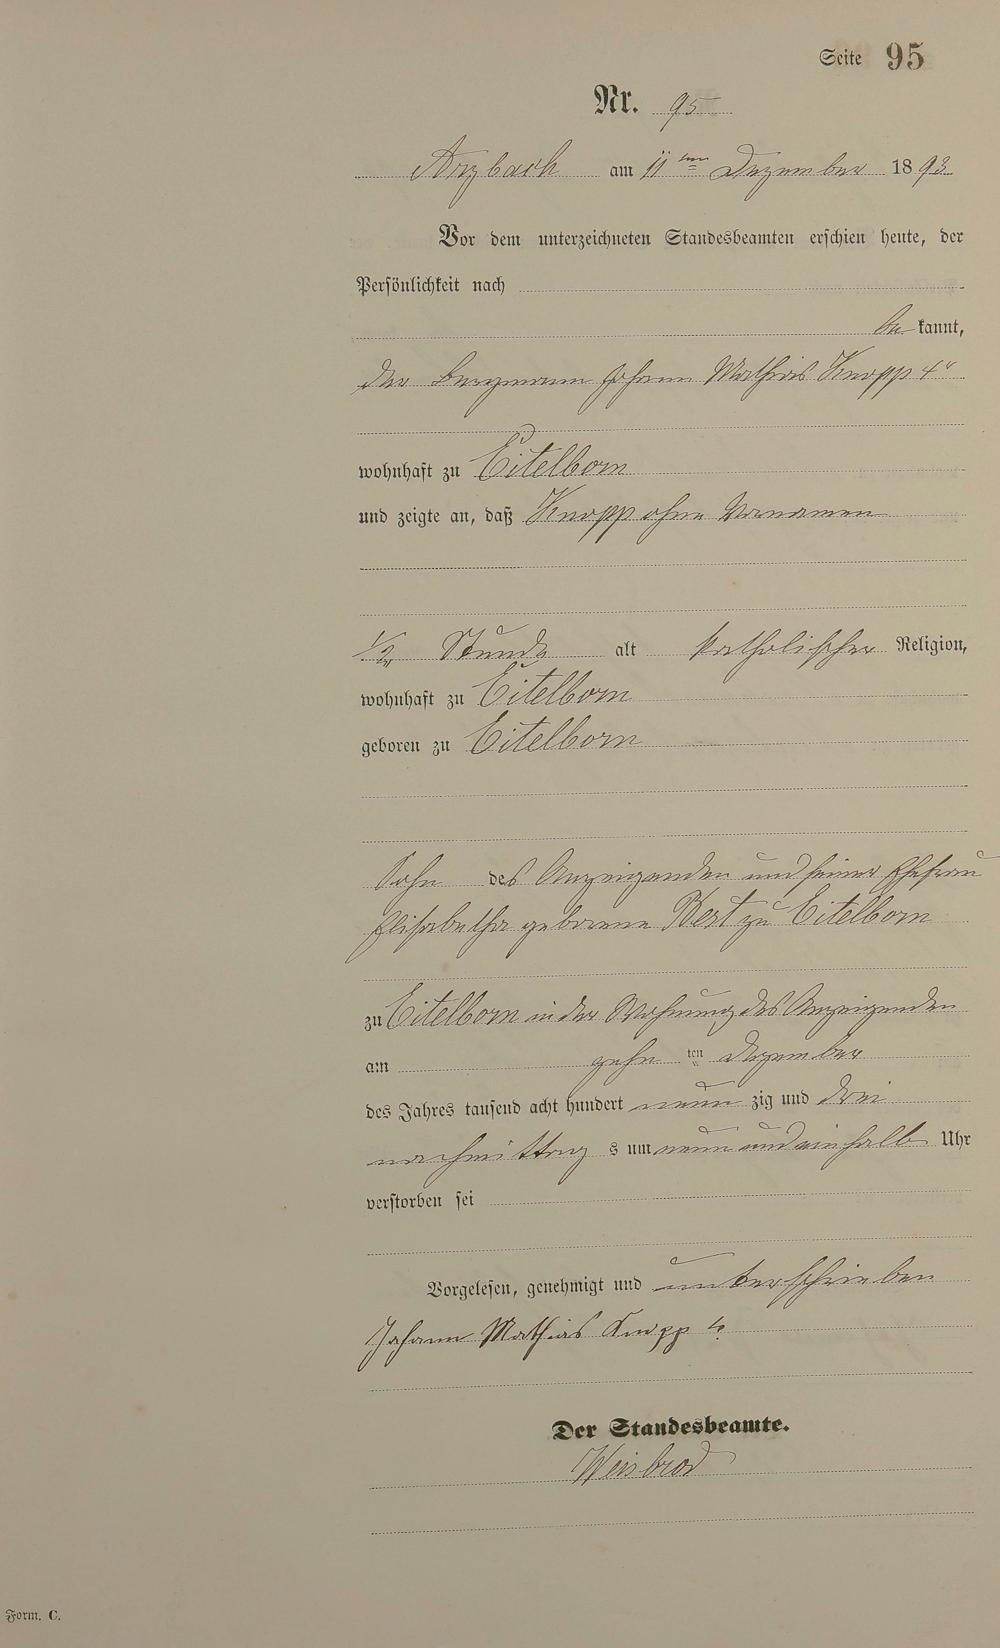 Seite 95
Nr. 95
Arzbach am 11ten Dezember 1893
Vor dem unterzeichneten Standesbeamten erschien heute, der
Persönlichkeit nach
bekannt,
der Bergmann Johann Mathias Knopp 4r
wohnhaft zu Eitelborn
und zeigte an, daß Knopp ohne Vornamen
1/2 Stunde alt katholischer Religion,
wohnhaft zu Eitelborn
geboren zu Eitelborn
Sohn des Anzeigenden und seiner Ehefrau
Elisabetha geborene Best zu Eitelborn
zu Eitelborn in der Wohnung des Anzeigenden
am zehn ten Dezember
des Jahres tausend acht hundert neun zig und drei
nachmittag s um neun und einhalb Uhr
verstorben sei
Vorgelesen, genehmigt und unterschrieben
Johann Mathias Knopp 4.
Der Standesbeamte.
Weisbrod
Form. C.